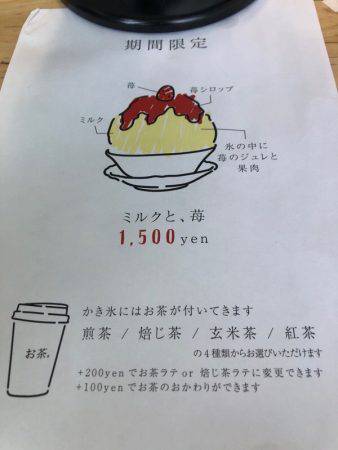 期間限定
苺
苺シロップ
ミルク
氷の中に
苺のジュレと
果肉
ミルクと、苺
1,500yen
かき氷にはお茶が付いてきます
煎茶 / 焙じ茶 / 玄米茶 / 紅茶
の4種類からお選びいただけます
お茶。
+200yenでお茶ラテ or 焙じ茶ラテに変更できます
+100yenでお茶のおかわりができます